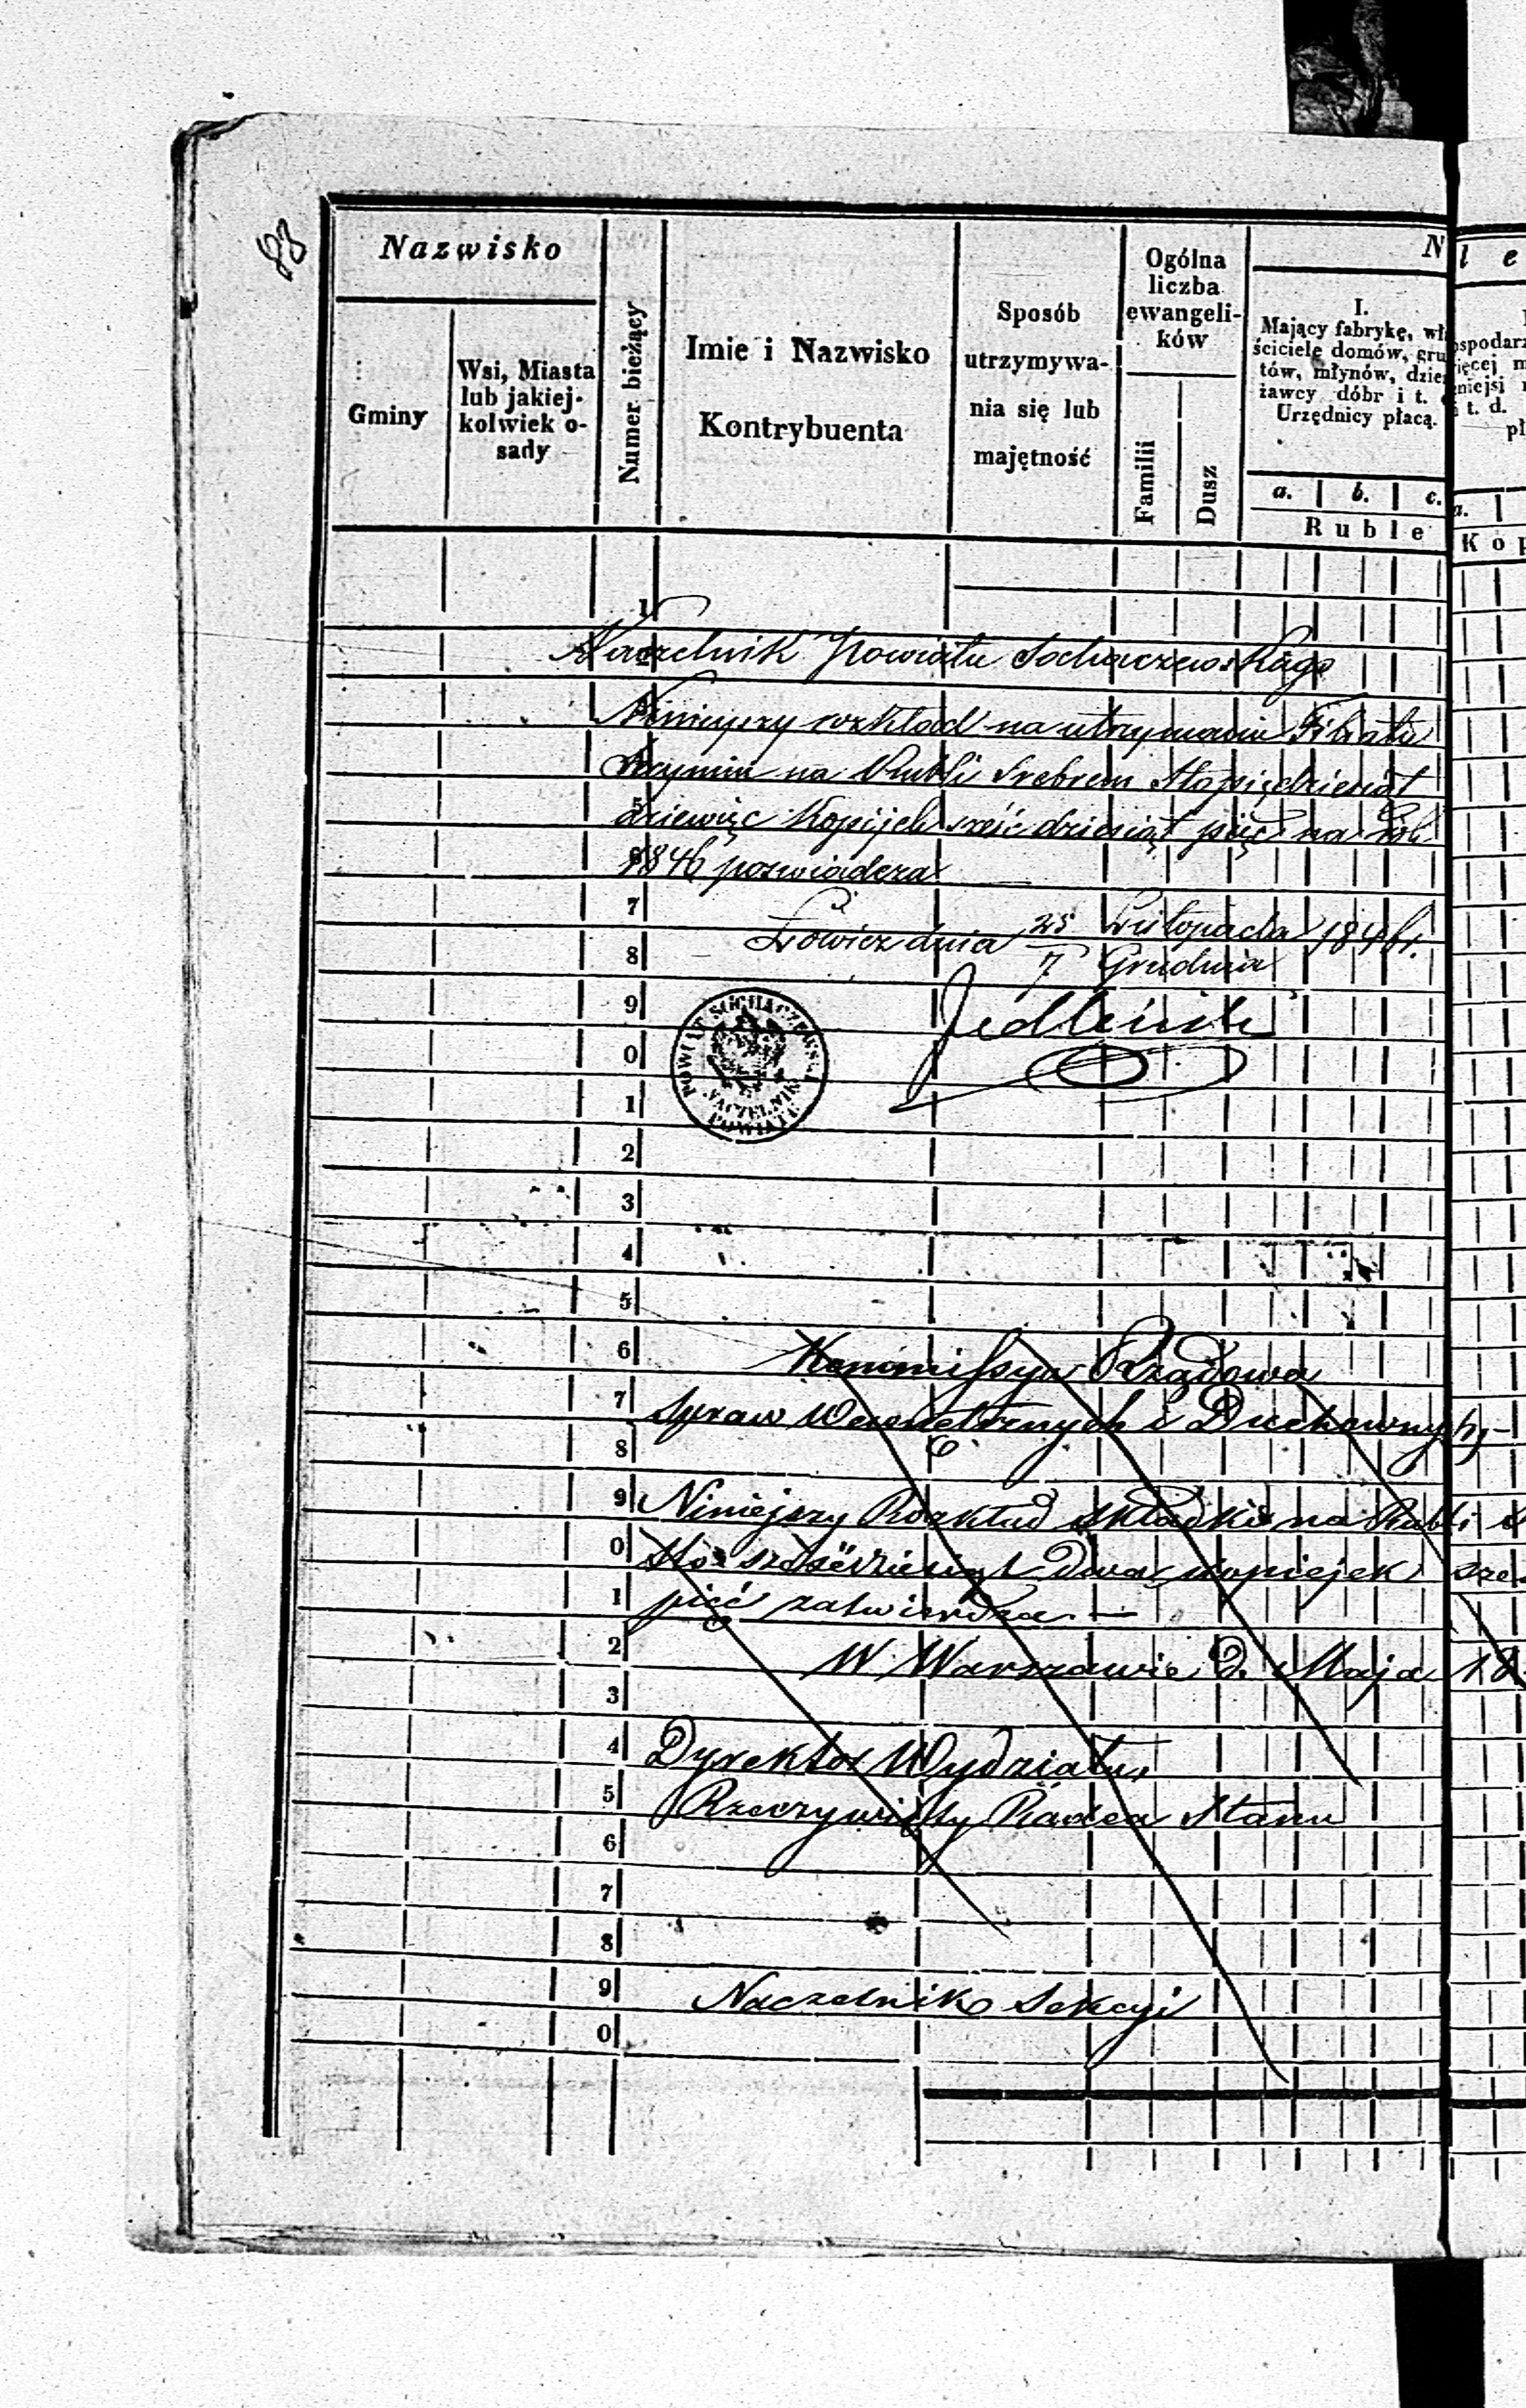 83
Nazwisko
Gminy
Wsi, Miasta
lub jakiej-
kolwiek o-
sady
Numer bieżący
Imie i Nazwisko
Kontrybuenta
Sposób
utrzymywa-
nia się lub
majętność
Ogólna
liczba
ewangeli-
ków
Familii
Dusz
N
I.
Mający fabrykę, wła
ściciele domów, grun
tów, młynów, dzier
żawcy dóbr i t. d
Urzędnicy płacą.
a. b. c.
Ruble
l e
ospodarz
ięcej m
niejsi
i t. d.
pł
a.
Kop
1
Naczelnik Powiatu Sochaczewskiego
Niniejszy rozkład na utrzymanie Filiału
na Rubli Srebrem Stopięćdziesiąt
5
dziewięć Kopijek sześćdziesiąt pięć na rok
1846 poświadcza
7
Łowicz dnia 25 Listopada / 7 Grudnia 1846 r.
8
9
0
1
POWIAT SOCHACZEWSKI
NACZELNIK
POWIATU
2
3
4
5
6
Kommissya Rządowa
7
Spraw Wewnętrznych i Duchownych,
8
9
Niniejszy Rozkład składki na Rubli s
0
sto sześćdziesiąt dwa, kopiejek sze
1
pięć zatwierdza. —
2
W Warszawie d. Maja 18
3
4
Dyrektor Wydziału,
5
Rzeczywisty Radca Stanu
6
7
8
9
Naczelnik Sekcyi
0